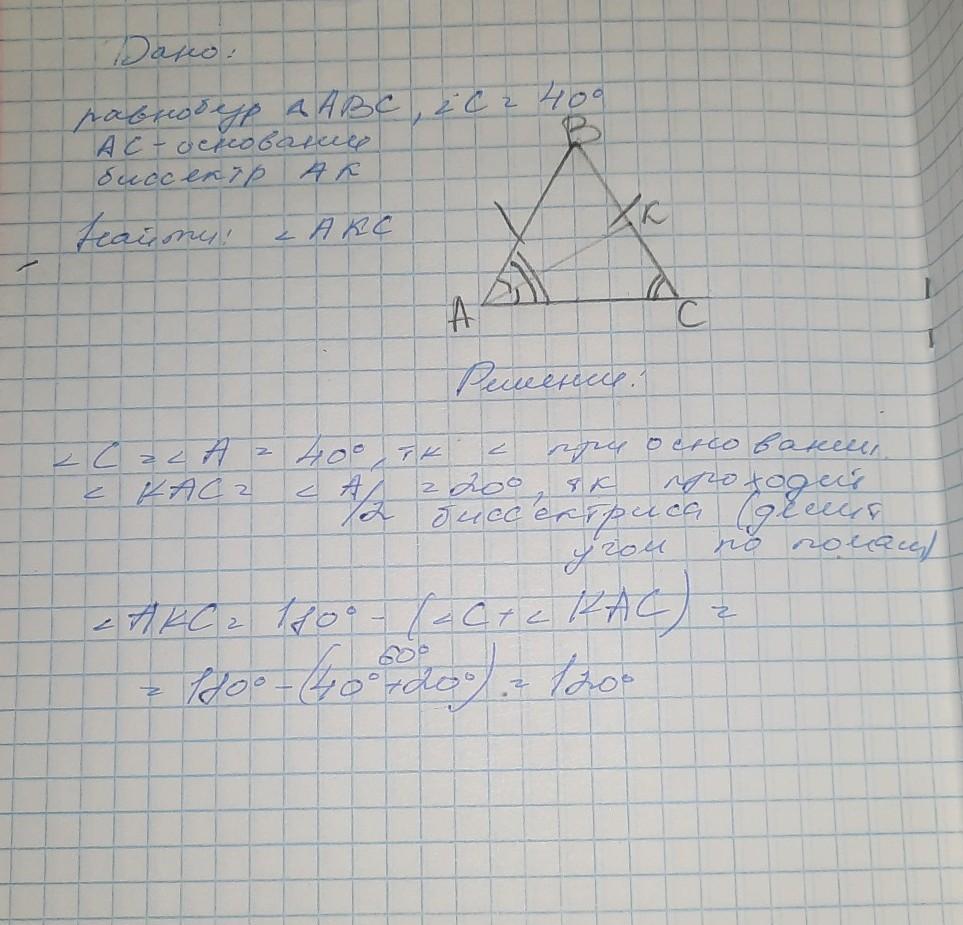 Дано:
равнобур △ABC, ∠C = 40°
AC - основание
биссектр AK
Найти: ∠AKC
B
K
A
C
Решение:
∠C = ∠A = 40°, тк ∠ при основании
∠ KAC = ∠A/2 = 20°, тк проходит
биссектриса (делит
угол по полам)
∠AKC = 180° - (∠C + ∠KAC) =
60°
= 180° - (40° + 20°) = 120°